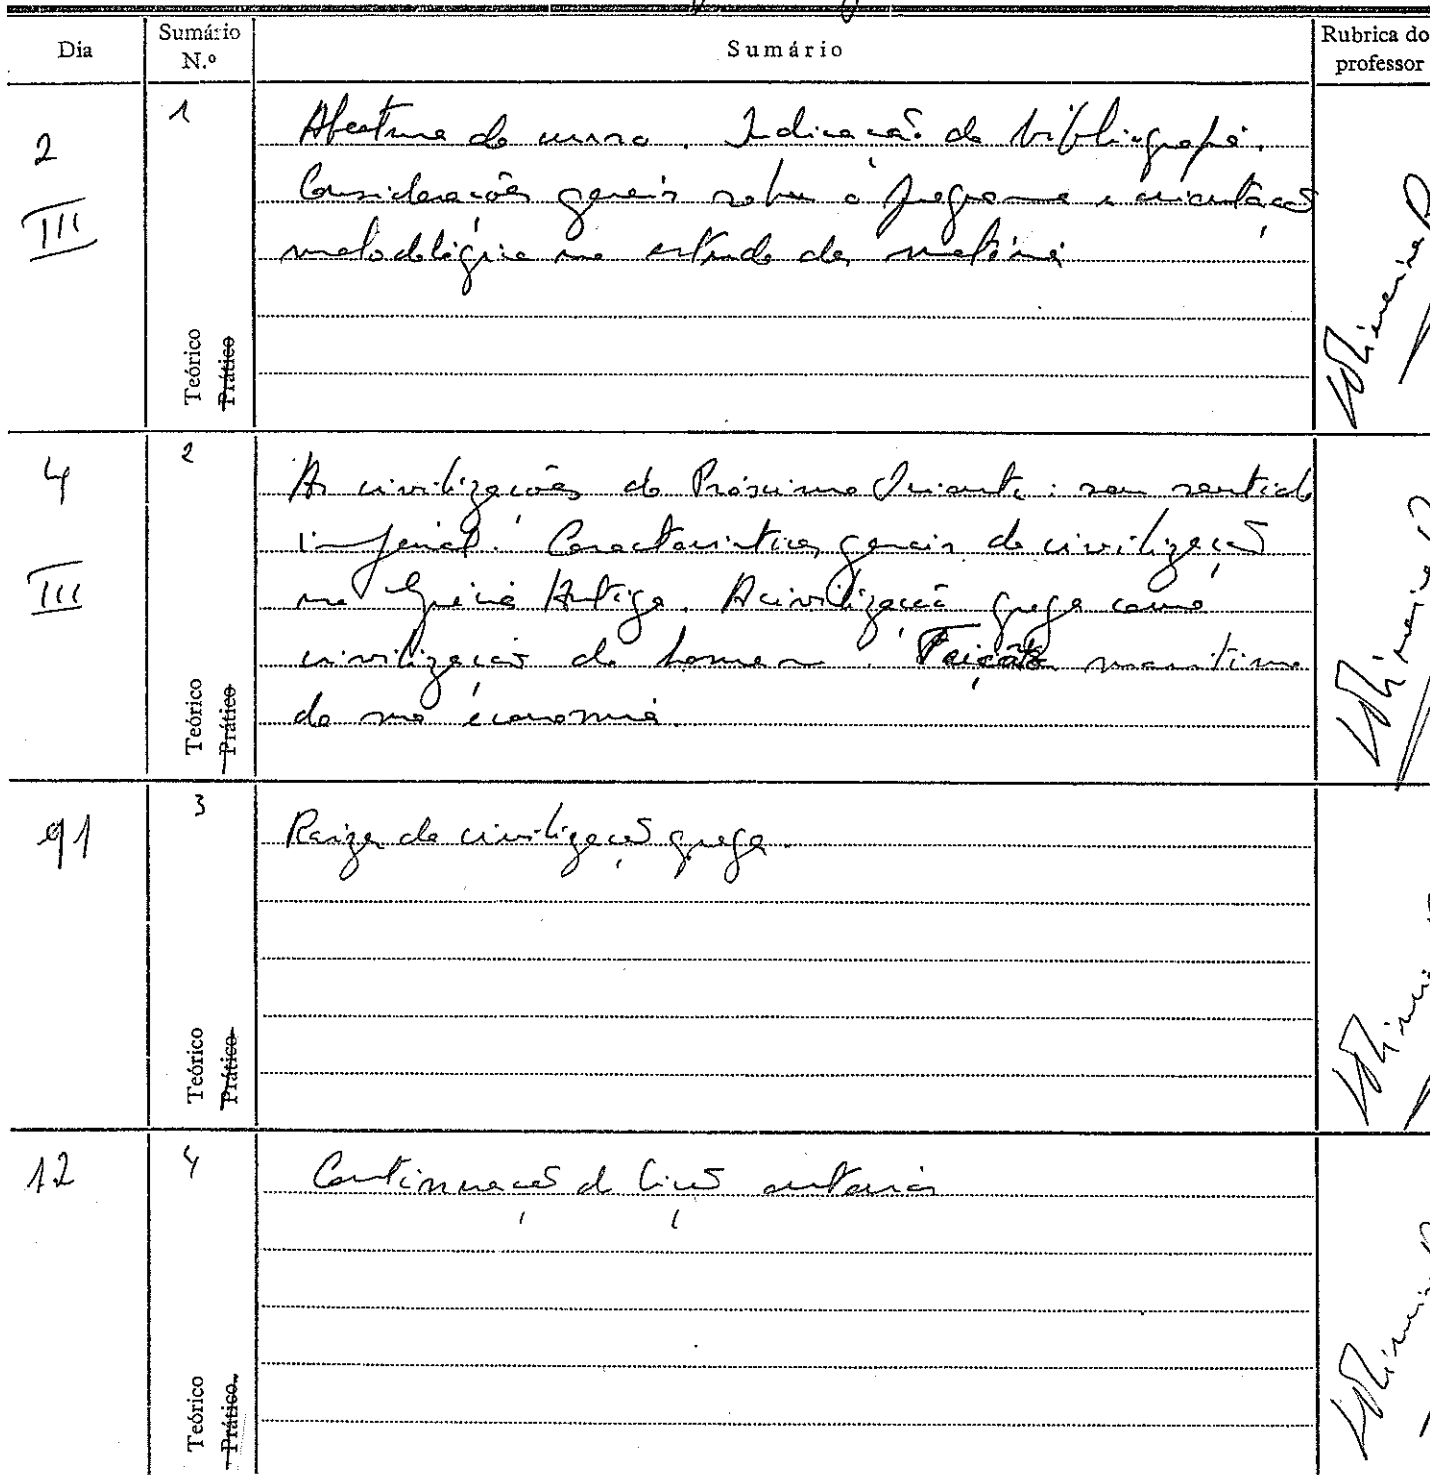 Dia
Sumário
N.º
Sumário
Rubrica do
professor
2
III
1
Abertura do curso. Indicação de bibliografia.
Considerações gerais sobre o programa e orientação
metodológica no estudo da matéria
Teórico
Prático
4
III
2
As civilizações do Próximo Oriente: seu sentido
imperial. Características gerais da civilização
na Grécia Antiga. A civilização grega como
civilização do homem. Feição marítima
da sua economia.
Teórico
Prático
91
3
Raízes da civilização grega.
Teórico
Prático
12
4
Continuação da lição anterior
Teórico
Prático